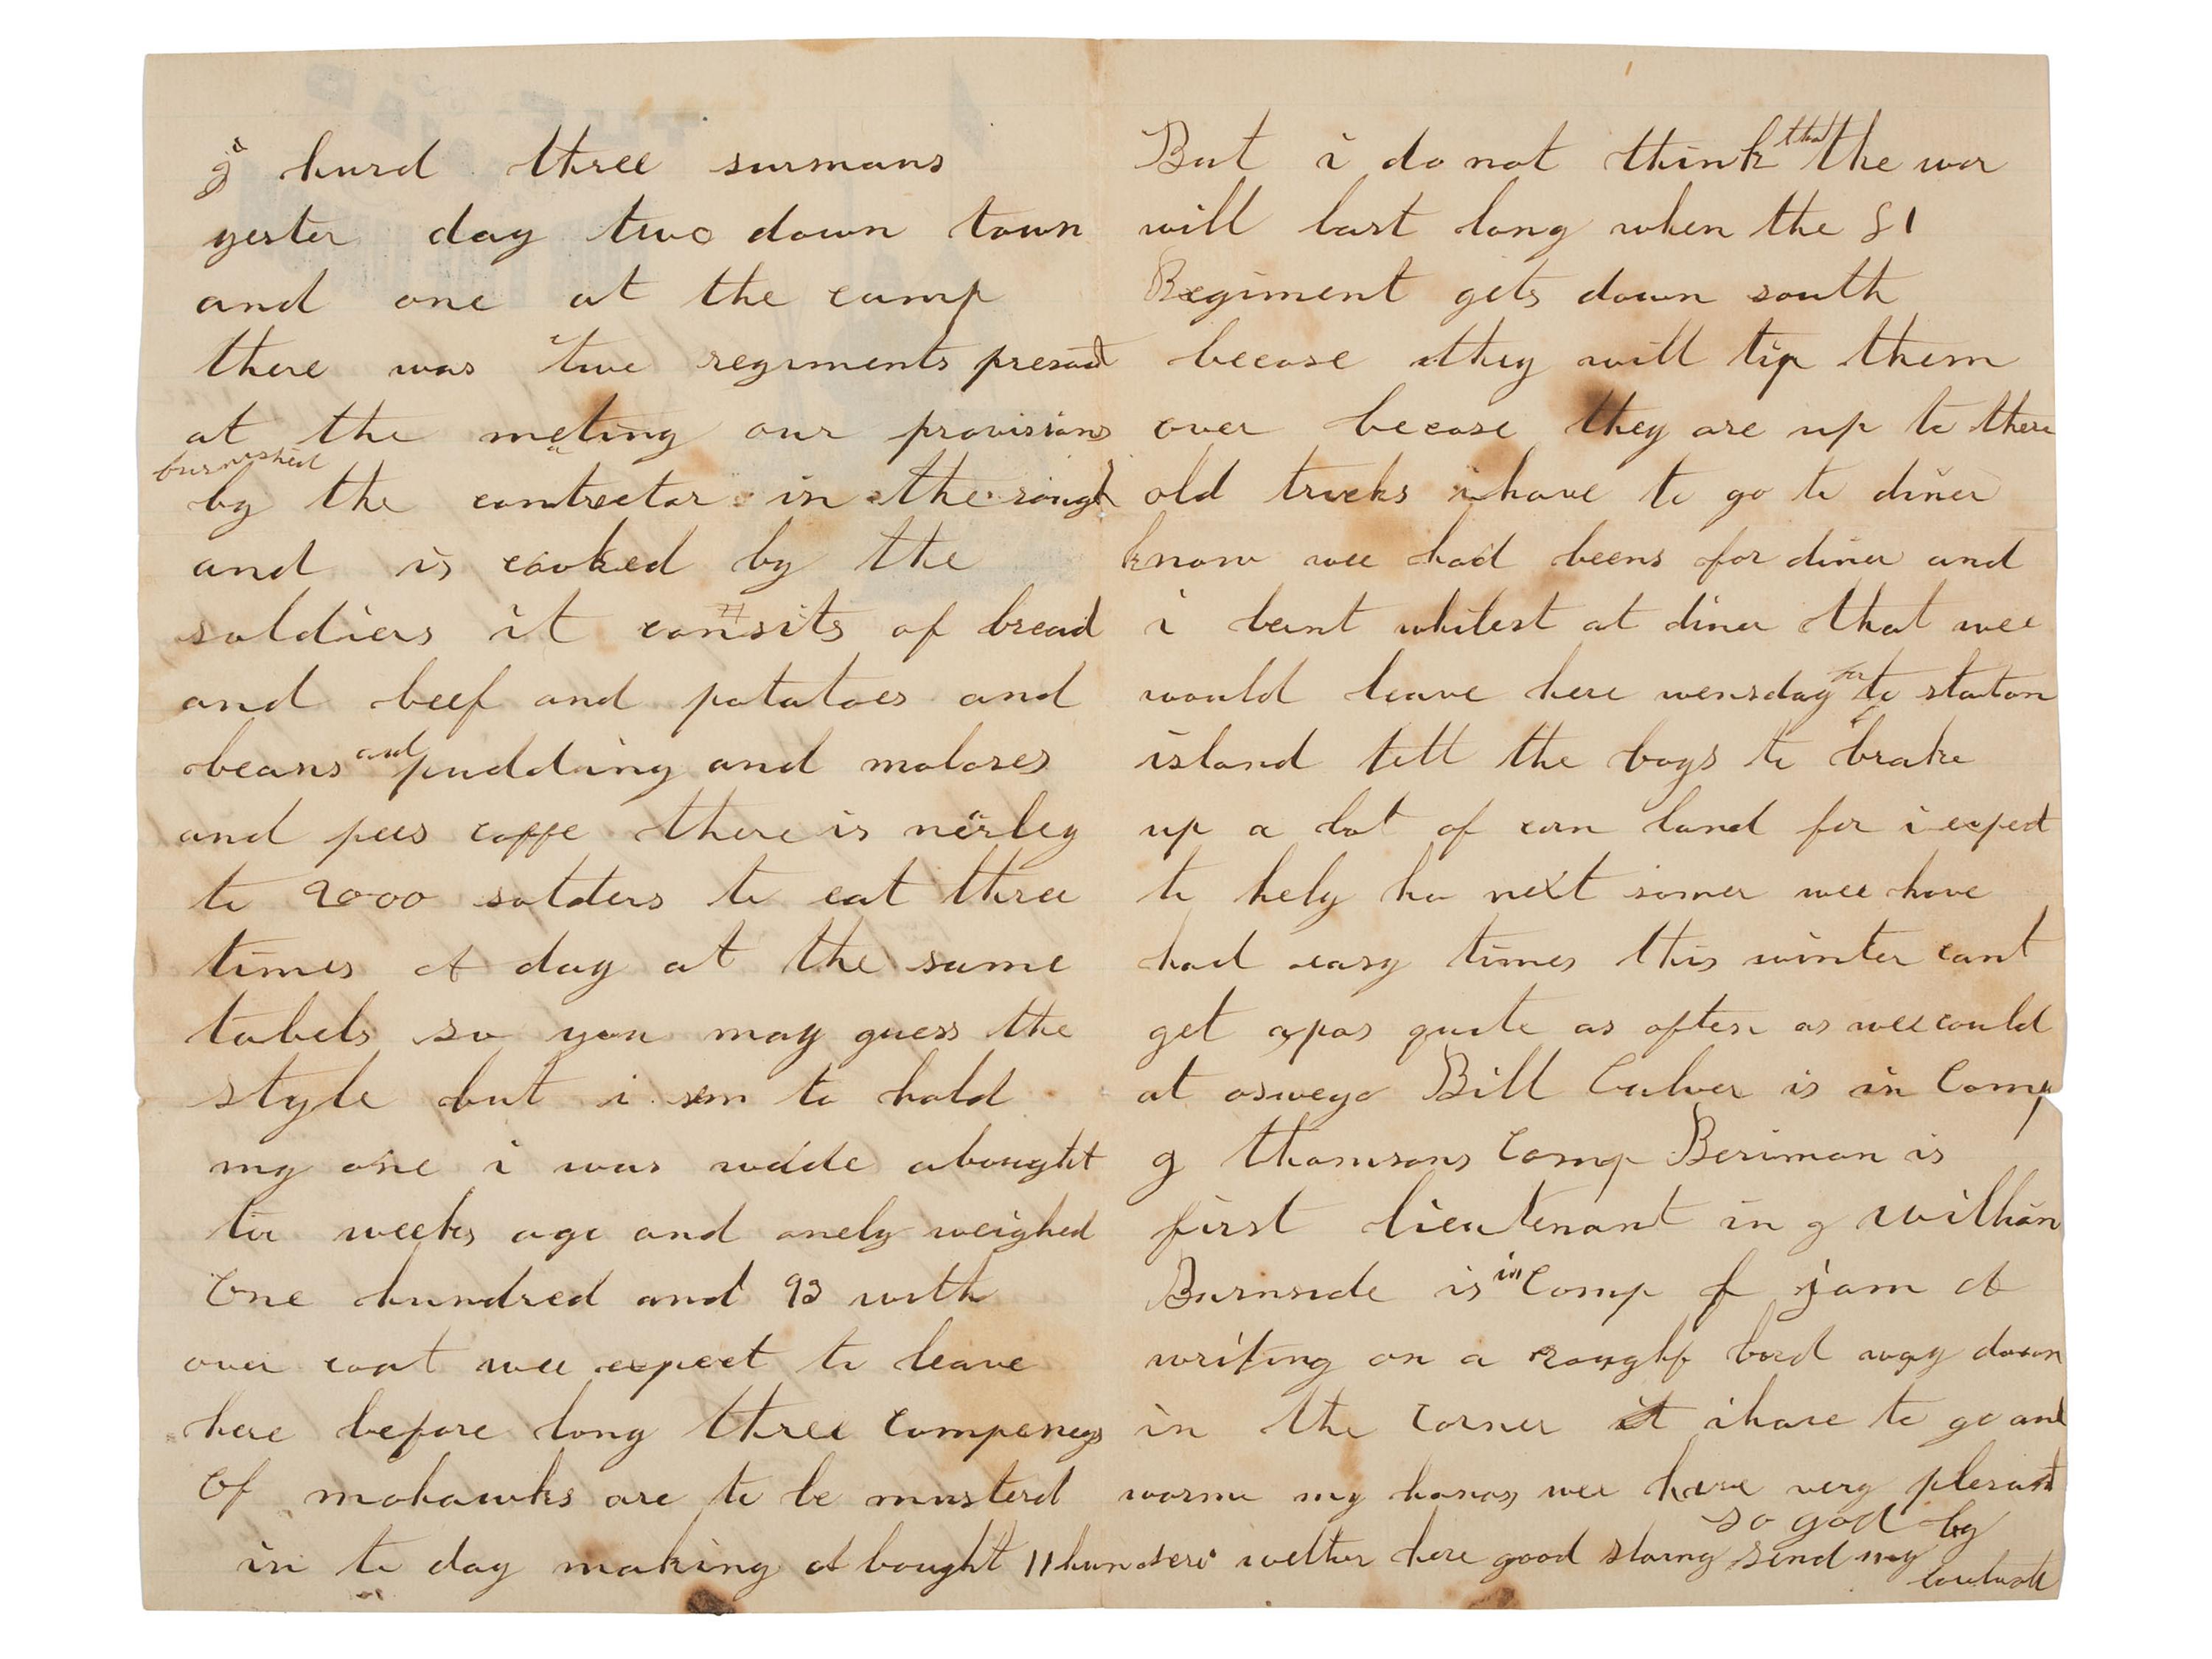 i hurd three surmans
yester day two down town
and one at the camp
there was two regiments presant
at the meting our provisions
furnished
by the contrector in the rough
and is cooked by the
soldiers it consits of bread
and beef and potatoes and
beans and pudding and molases
and pees coffe there is nerley
to 2000 solders to eat three
times A day at the same
tabels so you may guess the
style but i em to hold
my one i was wáde abought
tu weeks ago and onely weighed
One hundred and 93 with
over coat wee expect to leave
here before long three compeneys
Of mohawks are to be musterd
in to day making A bought 11 hunderd
But i do not think that the war
will last long when the 81
Regiment gets down south
becose they will tip them
over becose they are up to there
old tricks i have to go to diner
know wee had beens for diner and
i lernt whilest at diner that wee
would leave here wensday for to staton
island tell the boys to brake
up a lot of corn land for i expect
to help ho next somer wee have
had easy times this winter cant
get a pas quite as often as wee could
at oswego Bill Culver is in Comp
g thomsons Comp Beriman is
first lieutenant in g William
Burnside is in Comp f i am A
writing on a rough bord way down
in the corner i have to go and
warm my hands wee have very plesant
so god by
wether here good slaing send my